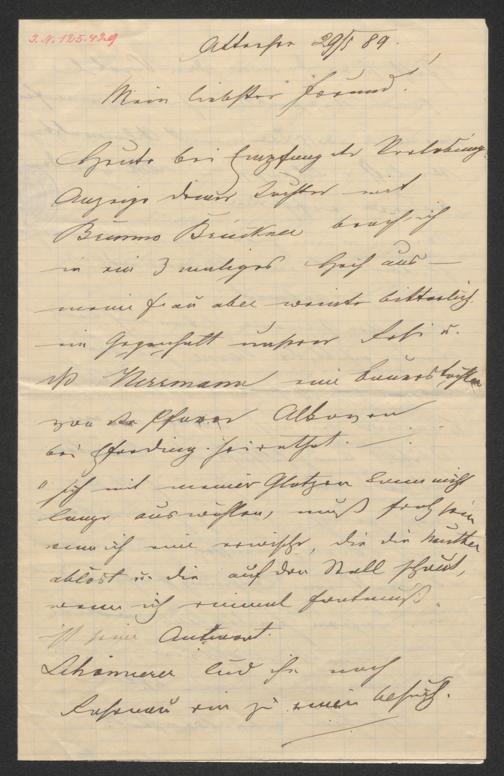 I.N. 125.429
Attersee 29/5 89.
Mein liebster Freund!
Heute bei Empfang der Verlobungs
Anzeige deiner Tochter mit
Brunno Brückner brach ich
in ein 3 maliges Hoch aus —
meine Frau aber weinte bitterlich.
ein Gegenhalt unserer u.
Herrmann eine Bauerstochter
von der Pfarre Alkoven
bei Efording heirathet. —
"Ich mit meiner Glatzen kann nicht
lange auswählen, muß froh sein
wenn ich eine erwische, die die Mutter
ablöst u. die auf den Stall schaut,
wenn ich einmal fortmuß.
ist seine Antwort.
Schönnerer lud ihn nach
Rosenau ein zu einen Besuch.